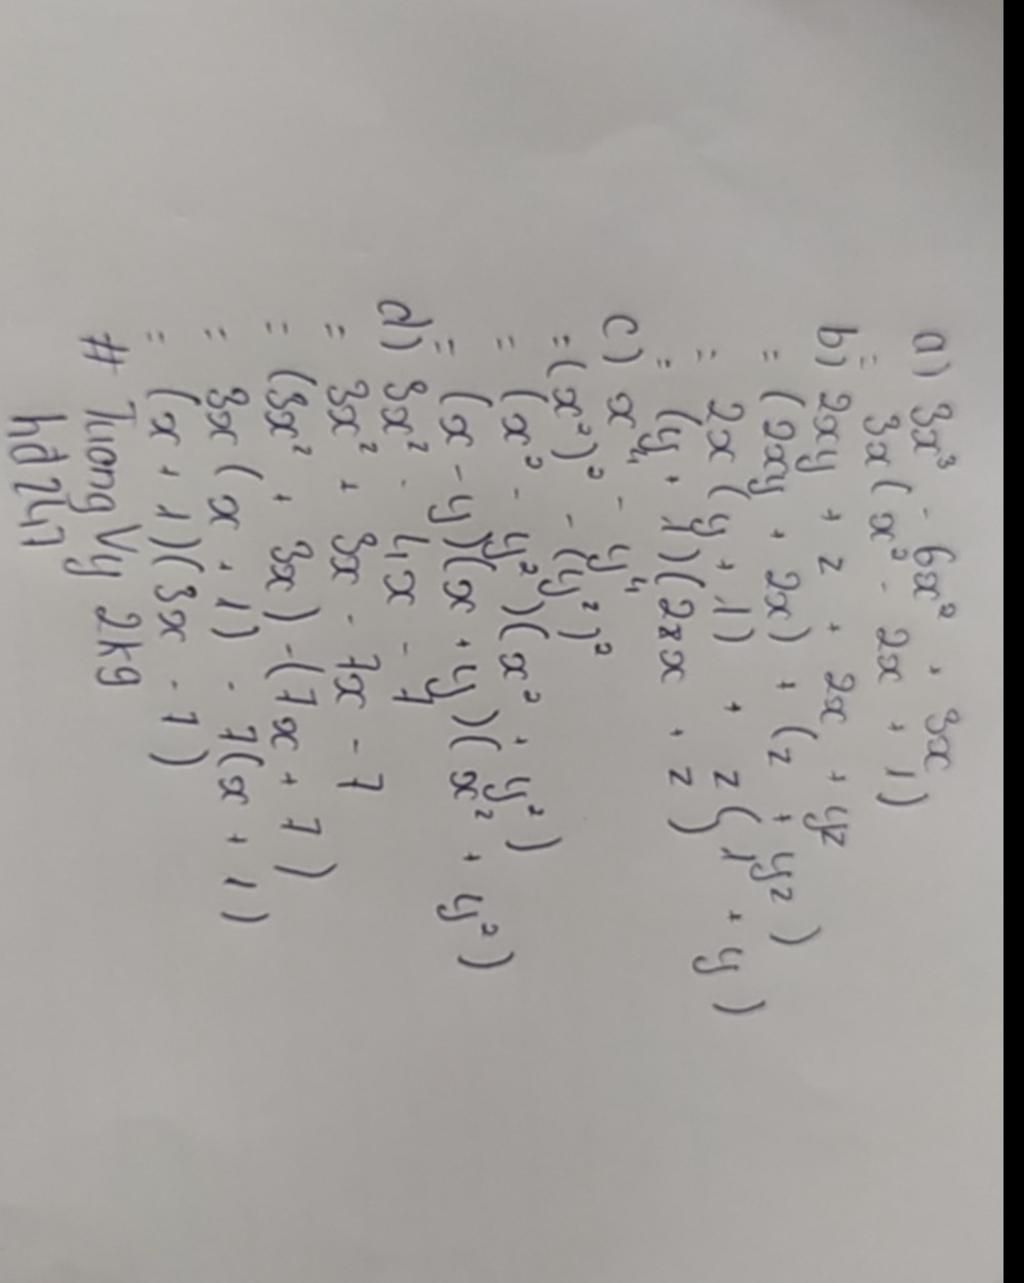 a) 3x³ - 6x² + 3x
= 3x(x² - 2x + 1)
b) 2xy + z + 2x + yz
= (2xy + 2x) + (z + yz)
= 2x(y + 1) + z(1 + y)
= (y + 1)(2x + z)
c) x⁴ - y⁴
= (x²)² - (y²)²
= (x² - y²)(x² + y²)
= (x - y)(x + y)(x² + y²)
d) 3x² - 4x - 7
= 3x² + 3x - 7x - 7
= (3x² + 3x) - (7x + 7)
= 3x(x + 1) - 7(x + 1)
= (x + 1)(3x - 7)
# Tuong Vy 2kg
hđ247